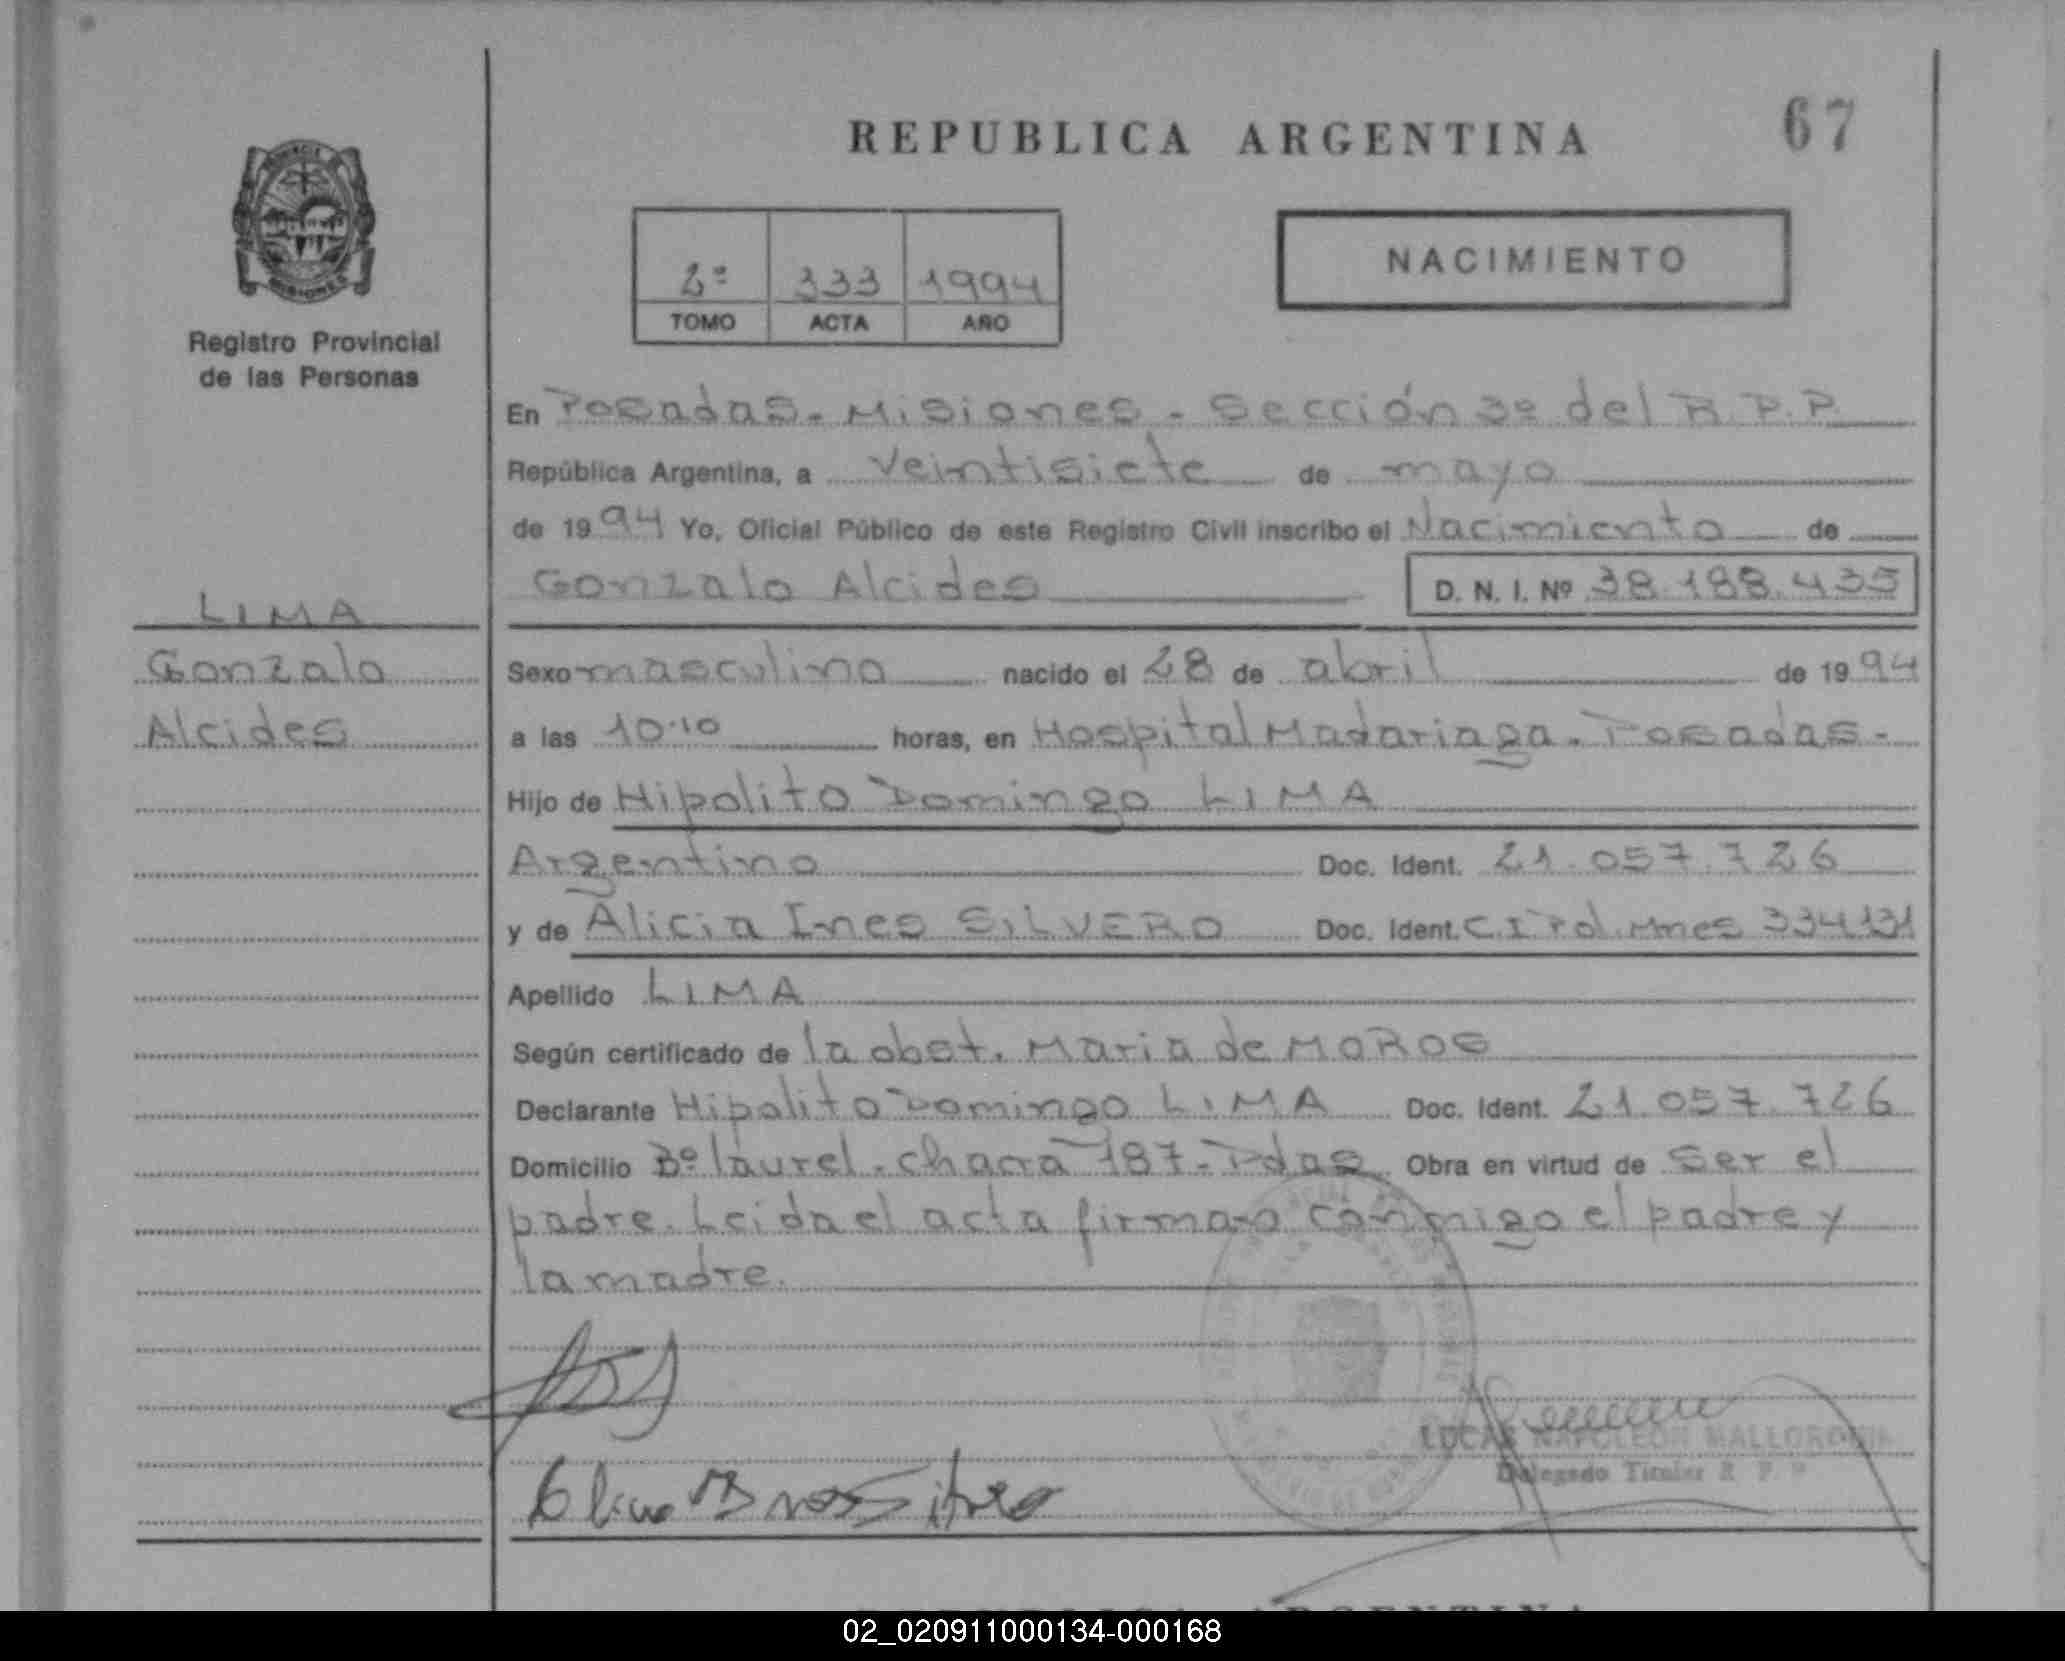 REPUBLICA ARGENTINA
67
2º 333 1994
TOMO ACTA AÑO
NACIMIENTO
MISIONES
Registro Provincial
de las Personas
En Posadas - Misiones - Sección 3º del R.P.P.
República Argentina, a veintisiete de mayo
de 1994 Yo, Oficial Público de este Registro Civil inscribo el Nacimiento de
Gonzalo Alcides D. N. I. Nº 38.188.435
LIMA
Gonzalo
Alcides
Sexo masculino nacido el 28 de abril de 1994
a las 10.10 horas, en Hospital Madariaga - Posadas -
Hijo de Hipolito Domingo LIMA
Argentino Doc. Ident. 21.057.726
y de Alicia Ines SILVERO Doc. Ident. C.I Pol. Mnes 334131
Apellido LIMA
Según certificado de la obst. Maria de MOROS
Declarante Hipolito Domingo LIMA Doc. Ident. 21.057.726
Domicilio Bº laurel - chacra 187 - Pdas Obra en virtud de ser el
padre. Leida el acta firman conmigo el padre y
la madre.
LUCAS NAPOLEON MALLORQUIN
Delegado Titular R. P.
02_020911000134-000168